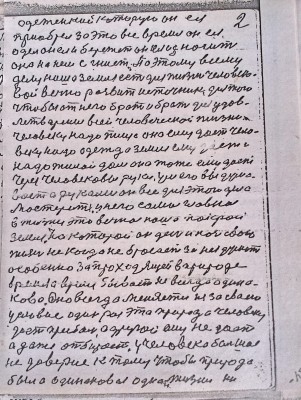 2
одеженкий которую он ел
приобрел за это все время он ел
одел он ель бережет он его носить
она на нем с гниет. Поэтому всему
делу наш земля есть для жизни человеко
вой вечно развит источник, для того
чтобы от него брать и брать для удов-
летвареми всей человеческой жизни
человеку надо пища она ему дает чело-
веку надо одежда земля ему дает
надо жилой дом она тоже ему дает
через человекови руки, ум его выдумы-
вает а руками он все для этого дела
мастерить, у него самы главна
в жизни это вечна наша покрой
земля, на которой он день и ночь свою
жизнь некогда не бросает за нея держит
особенно за проход людей в природе
время а время бывает не всегда одина-
ково. Оно всегда меняется и за свою
условие один раз эта природа человеку
дает требовал а другой ему не дает
а даже отбирает, у человека больше
не доверие к тому чтобы природа
была одинаковая одна, жизни ни